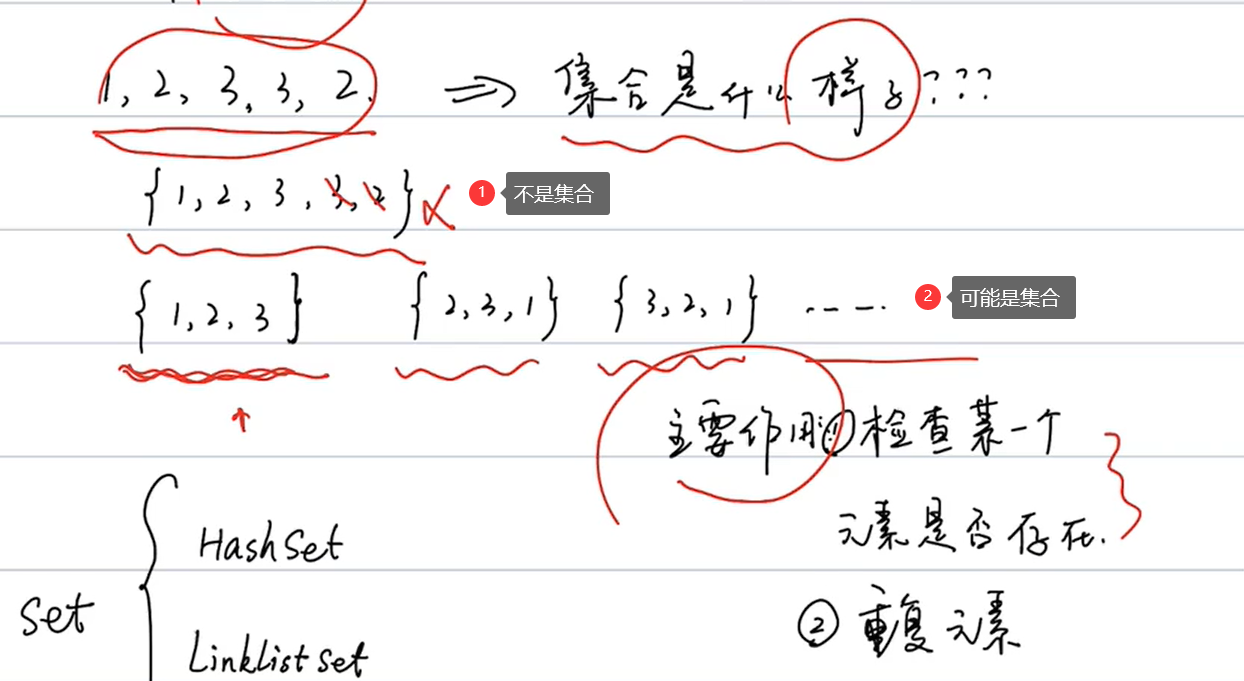 1, 2, 3, 3, 2. ⇒ 集合是什么样子???
{1, 2, 3, 3, 2} × 1 不是集合
{1, 2, 3} {2, 3, 1} {3, 2, 1} ...... 2 可能是集合
主要作用: ① 检查某一个
元素是否存在.
HashSet
Set
② 重复元素
Linklist set